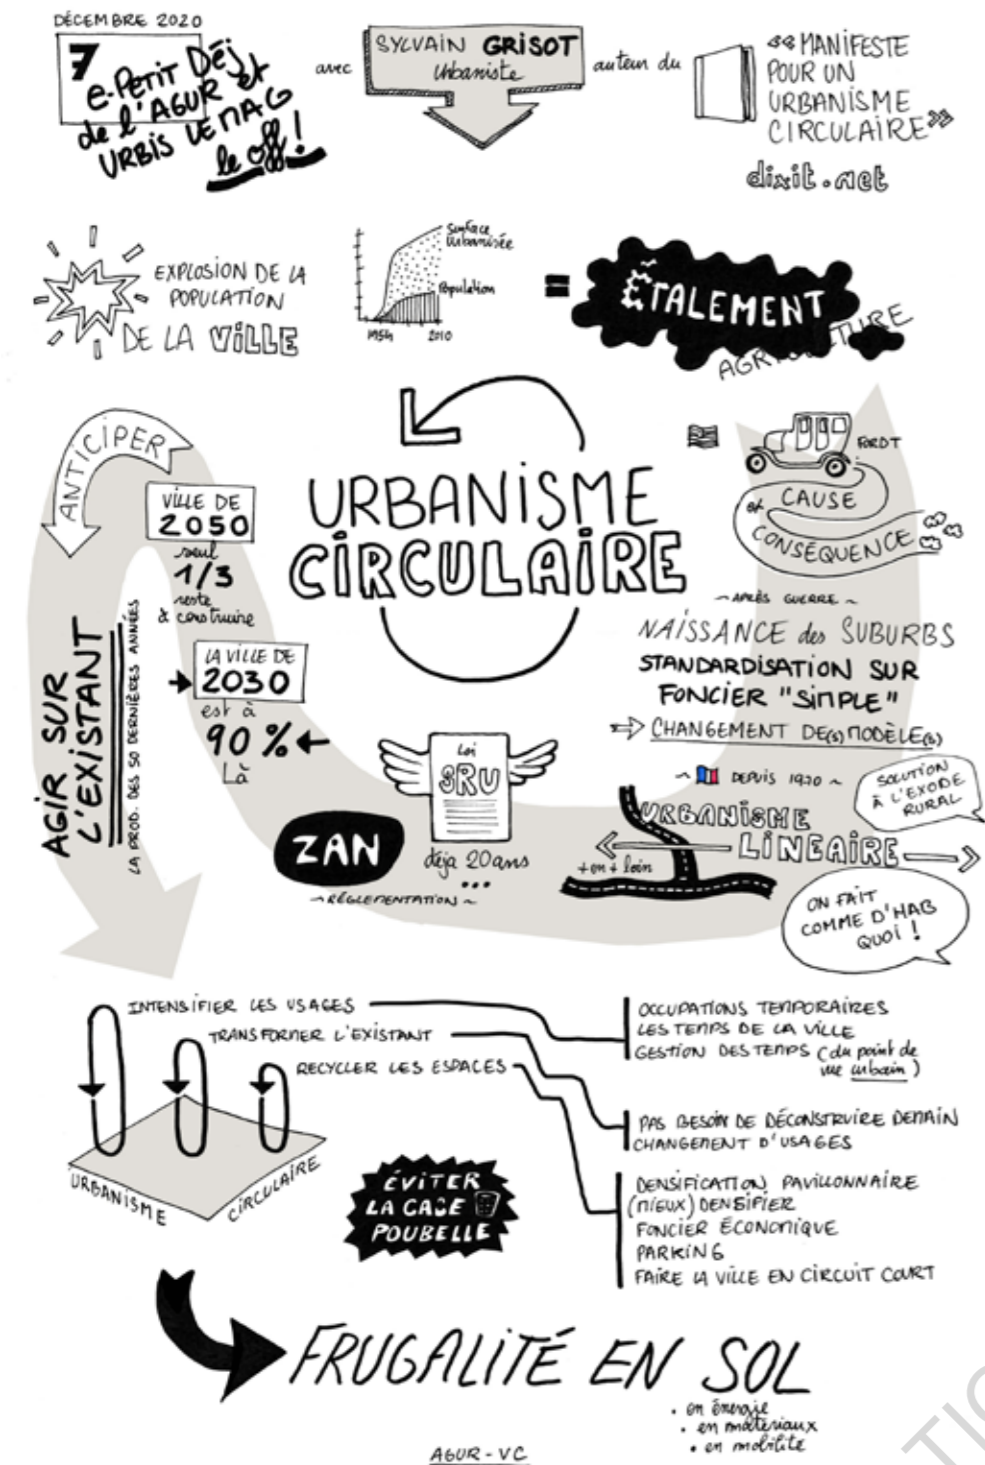 DÉCEMBRE 2020
7
e-Petit Déj
de l'AGUR et
URBIS LE MAG
le off !
avec
SYLVAIN GRISOT
Urbaniste
auteur du
« MANIFESTE
POUR UN
URBANISME
CIRCULAIRE »
dixit.net
EXPLOSION DE LA
POPULATION
DE LA VILLE
Surface
Urbanisée
Population
1954 2010
=
ÉTALEMENT
AGRICULTURE
ANTICIPER
VILLE DE
2050
seul
1/3
reste
à construire
LA VILLE DE
2030
est à
90 %
Là
AGIR SUR
L'EXISTANT
LA PROD. DES 50 DERNIÈRES ANNÉES
URBANISME
CIRCULAIRE
FORD T
CAUSE
et
CONSÉQUENCE
~ APRÈS GUERRE ~
NAISSANCE des SUBURBS
STANDARDISATION SUR
FONCIER "SIMPLE"
CHANGEMENT DE(S) MODÈLE(S)
~ DEPUIS 1920 ~
SOLUTION
À L'EXODE
RURAL
URBANISME
LINEAIRE
+ en + loin
ON FAIT
COMME D'HAB
QUOI !
Loi
SRU
déja 20 ans
...
ZAN
~ RÉGLEMENTATION ~
INTENSIFIER LES USAGES
TRANSFORMER L'EXISTANT
RECYCLER LES ESPACES
URBANISME
CIRCULAIRE
OCCUPATIONS TEMPORAIRES
LES TEMPS DE LA VILLE
GESTION DES TEMPS (du point de
vue urbain)
PAS BESOIN DE DÉCONSTRUIRE DEMAIN
CHANGEMENT D'USAGES
DENSIFICATION PAVILLONNAIRE
(MIEUX) DENSIFIER
FONCIER ÉCONOMIQUE
PARKING
FAIRE LA VILLE EN CIRCUIT COURT
ÉVITER
LA CASE
POUBELLE
FRUGALITÉ EN SOL
• en énergie
• en matériaux
• en mobilité
AGUR - VC